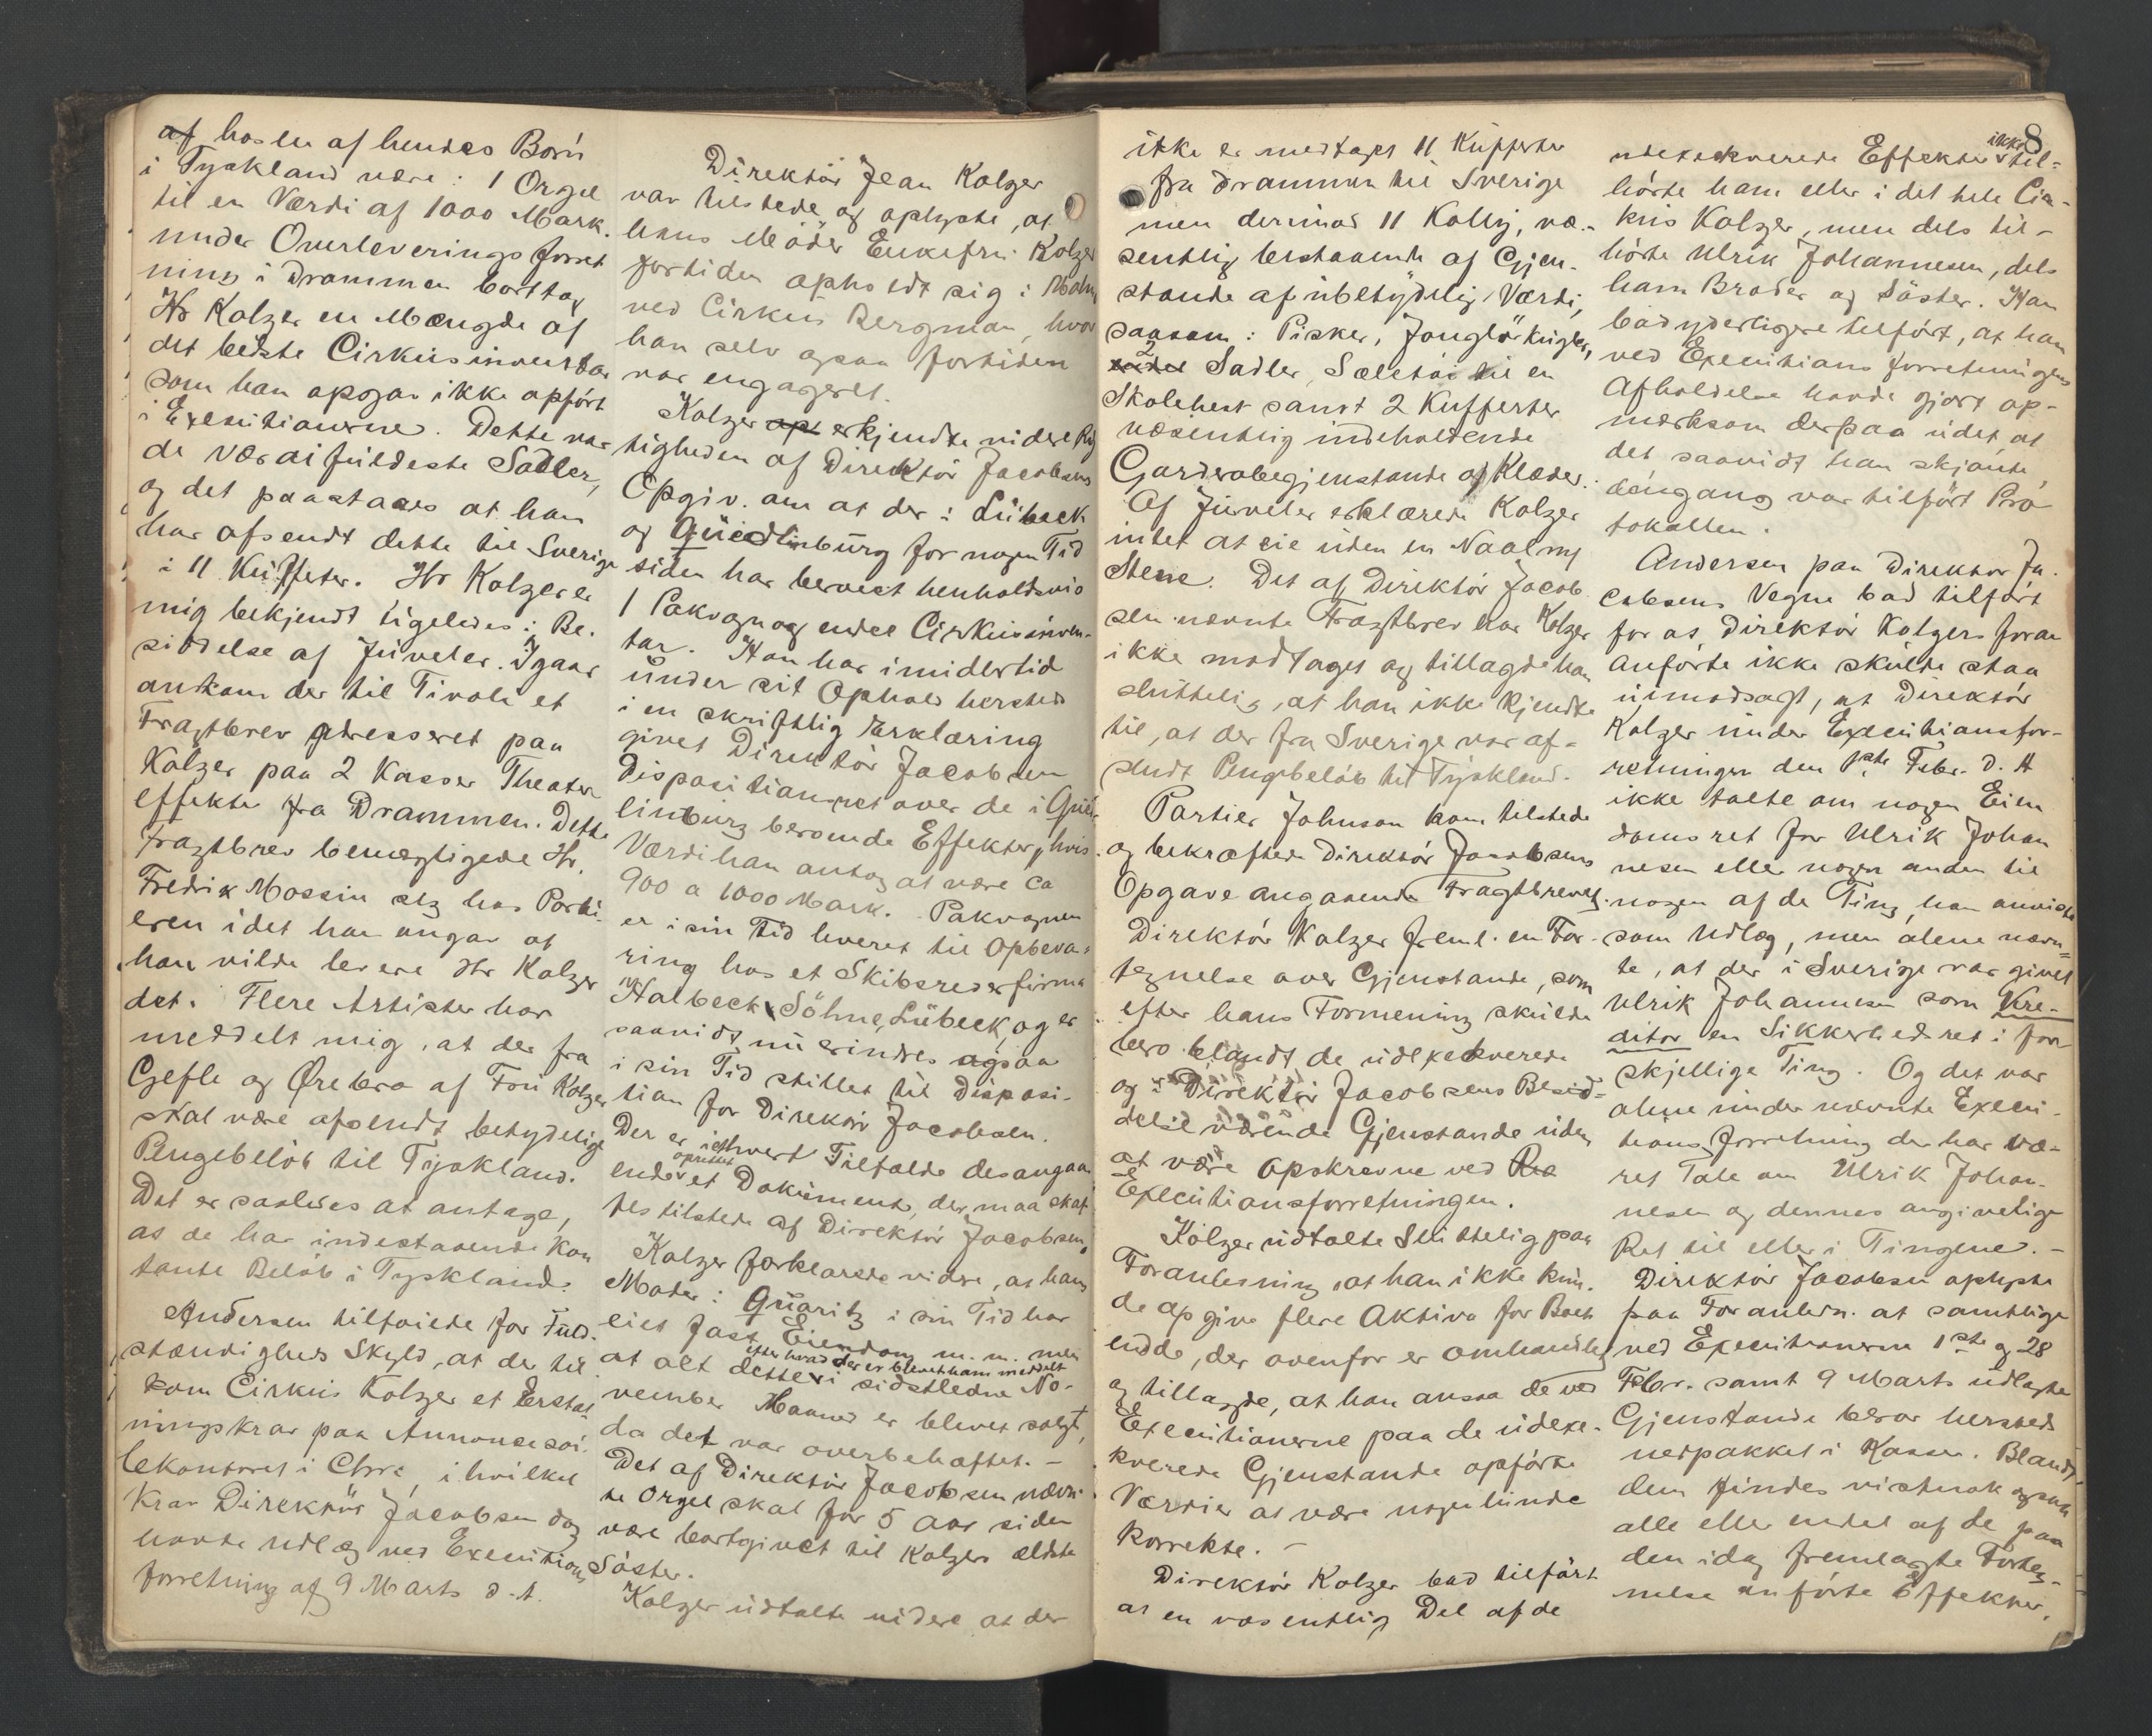 af hos en af hendes Børn
i Tyskland være: 1 Orgel
til en Værdi af 1000 Mark.
under Overleveringsforret
ning i Drammen borttog
Hr Kolzer en Mængde af
det bedste Cirkusinventar
som han opgav ikke opført
i Executionerne. Dette var
de værdifuldeste Sadler,
og det paastaaes at han
har afsendt dette til Sverige
i 11 Kufferter. Hr Kolzer er
mig bekjendt ligeledes i Be-
siddelse af Juveler. Igaar
ankom der til Tivoli et
Fragtbrev adresseret paa
Kolzer paa 2 Kasser Theater
effekter fra Drammen. Dette
Fragtbrev bemægtigede Hr.
Fredrik Mossin sig hos Porti-
eren idet han angav at
han vilde levere Hr Kolzer
det. Flere Artister har
meddelt mig, at der fra
Gefle og Ørebro af Fru Kolzer
skal være afsendt betydelige
Pengebeløb til Tyskland.
Det er saaledes at antage,
at de har indestaaende Kon
tante Beløb i Tyskland.
Andersen tilføiede for Fuld-
stændigheds Skyld, at der til
kom Cirkus Kolzer et Erstat
ningskrav paa Annoncesøi-
lekontoret i Chra, i hvilket
Krav Direktør Jacobsen dog
havde Udlæg ved Executions
forretning af 9 Marts d.A.
Direktör Jean Kolzer
var tilstede og oplyste, at
hans Moder Enkefru Kolzer
fortiden opholdt sig i Malmø
ved Cirkus Bergman, hvor
han selv ogsaa fortiden
var engageret.
Kolzer opl erkjendte videre Rig
tigheden af Direktør Jacobsens
Opgiv. om at der i Lübeck
og Quedlinburg for nogen Tid
siden har beroet henholdsvis
1 Pakvogn og endel Cirkusinven-
tar. Han har imidlertid
under sit Ophold hersteds
i en skriftlig Erklæring
givet Direktør Jacobsen
Dispositionsret over de i Qued
linburg beroende Effekter, hvis
Værdi han antog at være ca
900 a 1000 Mark. Pakvognen
er i sin Tid leveret til Opbeva-
ring hos et Skibsrederfirma
Halbeck Söhne, Lübeck, og er
saavidt nu erindres ogsaa
i sin Tid stillet til Disposi-
tion for Direktør Jacobsen.
Der er i ethvert Tilfælde desangaa
oprettet
ende et Dokument, der maa skaf
fes tilstede af Direktør Jacobsen,
Kolzer forklarede videre, at hans
Moder i Quaritz i sin Tid har
eiet fast Eiendom m.m. men
efter hvad der er blevet ham meddelt
at alt dette i sidstledne No-
vember Maaned er blevet solgt,
da det var overbehæftet. -
Det af Direktør Jacobsen nævn
te Orgel skal for 5 Aar siden
være bortgivet til Kolzers ældste
Søster.
Kolzer udtalte videre at der
ikke er medtaget 11 Kufferter
fra Drammen til Sverige
men derimod 11 Kolly, væ-
sentlig bestaaende af Gjen-
stande af ubetydelig Værdi,
saasom: Pisker, Jonglörkugler,
2 Sadler, Sæletøi til en
Skolehest samt 2 Kufferter
væsentlig indeholdende
Garderobegjenstande og Klæder.
Af Juveler erklærede Kolzer
intet at eie uden en Naal m/
Stene. Det af Direktør Jacob
sen nævnte Fragtbrev har Kolzer
ikke modtaget og tillagde han
sluttelig, at han ikke kjendte
til, at der fra Sverige var af-
sendt Pengebeløb til Tyskland.
Portier Johnson kom tilstede
og bekræftede Direktør Jacobsens
Opgave angaaende Fragtbrevet.
Direktør Kolzer freml. en For-
tegnelse over Gjenstande, som
efter hans Formening skulde
bero blandt de udexekverede
og i Direktør Jacobsens Besid-
delse værende Gjenstande uden
at være opskrevne ved Exe
Executionsforretningen.
Kolzer udtalte sluttelig paa
Foranledning, at han ikke kun-
de opgive flere Aktiva for Boet
endde, der ovenfor er omhandlet
og tillagde, at han ansaa de ved
Executionerne paa de udexe-
kverede Gjenstande opførte
Værdier at være nogenlunde
korrekte. -
Direktör Kolzer bad tilført
at en væsentlig Del af de
8
ikke
udexekverede Effekter til-
hørte ham eller i det hele Cir-
kus Kolzer, men dels til-
hørte Ulrik Johannesen, dels
hans Broder og Søster. Han
bad yderligere tilført, at han
ved Executionsforretningens
Afholdelse havde gjort op-
mærksom derpaa uden at
det saavidt han skjønte
dengang var tilført Pro
tokollen.
Andersen paa Direktør Ja-
cobsens Vegne bad tilført
for at Direktör Kolzers foran
anførte ikke skulde staa
uimodsagt, at Direktør
Kolzer under Executionsfor-
retningen den 1ste Febr. d.A
ikke talte om nogen Eien
domsret for Ulrik Johan
nesen eller nogen anden til
nogen af de Ting, han anviste
som Udlæg, men alene nævn-
te, at der i Sverige var givet
Ulrik Johannesen som Kre-
ditor en Sikkerhedsret i for-
skjellige Ting. Og det var
alene under nævnte Execu-
tions forretning der har væ-
ret Tale om Ulrik Johan-
nesen og dennes angivelige
Ret til eller i Tingene. -
Direktør Jacobsen oplyste
paa Foranledn. at samtlige
ved Executionerne 1ste og 28
Febr. samt 9 Marts udlagte
Gjenstande beror hersteds
nedpakket i Kasser. Blandt
dem findes vistnok ogsaa
alle eller endel af de paa
den idag fremlagte Forteg-
nelse anførte Effekter.